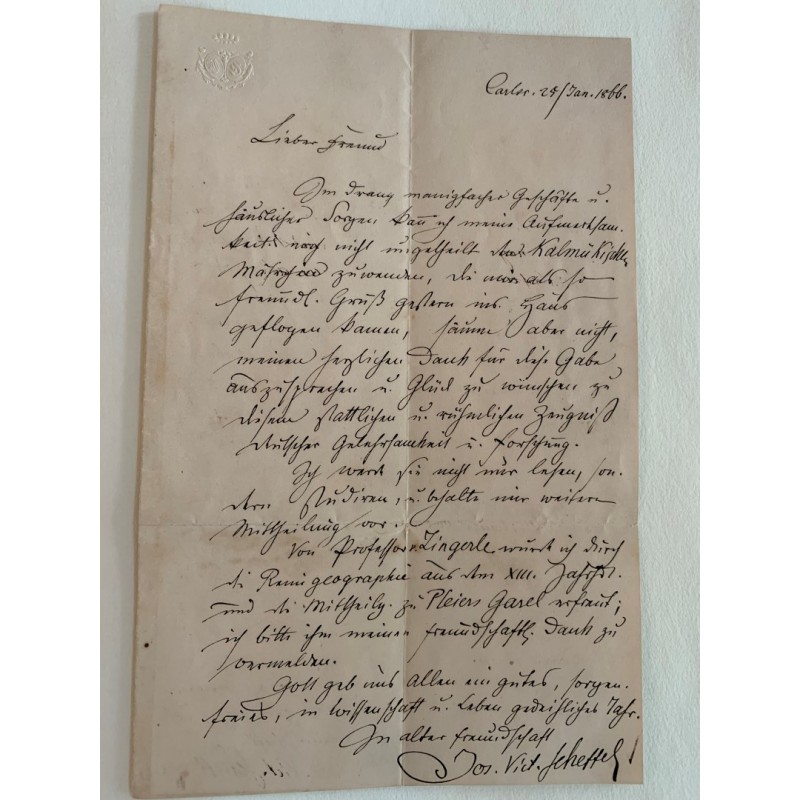 Carlsr. 25/Jan. 1866.
Lieber Freund
Im Drang manigfacher Geschäfte u.
häuslicher Sorgen kann ich meine Aufmerksam-
keit noch nicht ungetheilt den Kalmükischen
Märchen zuwenden, die mir als so
freundl. Gruß gestern ins Haus
geflogen kamen, säume aber nicht,
meinen herzlichen Dank für diese Gabe
auszusprechen u. Glück zu wünschen zu
diesem stattlichen u. rühmlichen Zeugniß
deutscher Gelehrsamkeit u. Forschung.
Ich werde sie nicht nur lesen, son-
dern studiren, u. behalte mir weitere
Mittheilung vor.
Von Professor Zingerle wurde ich durch
die Reimgeographie aus dem XIII. Jahrhdt.
und die Mittheilg. zu Pleiers Garel erfreut;
ich bitte ihm meinen freundschaftl. Dank zu
vermelden.
Gott geb uns allen ein gutes, sorgen-
freies, in Wissenschaft u. Leben gedeihliches Jahr.
In alter Freundschaft
Jos. Vict. Scheffel